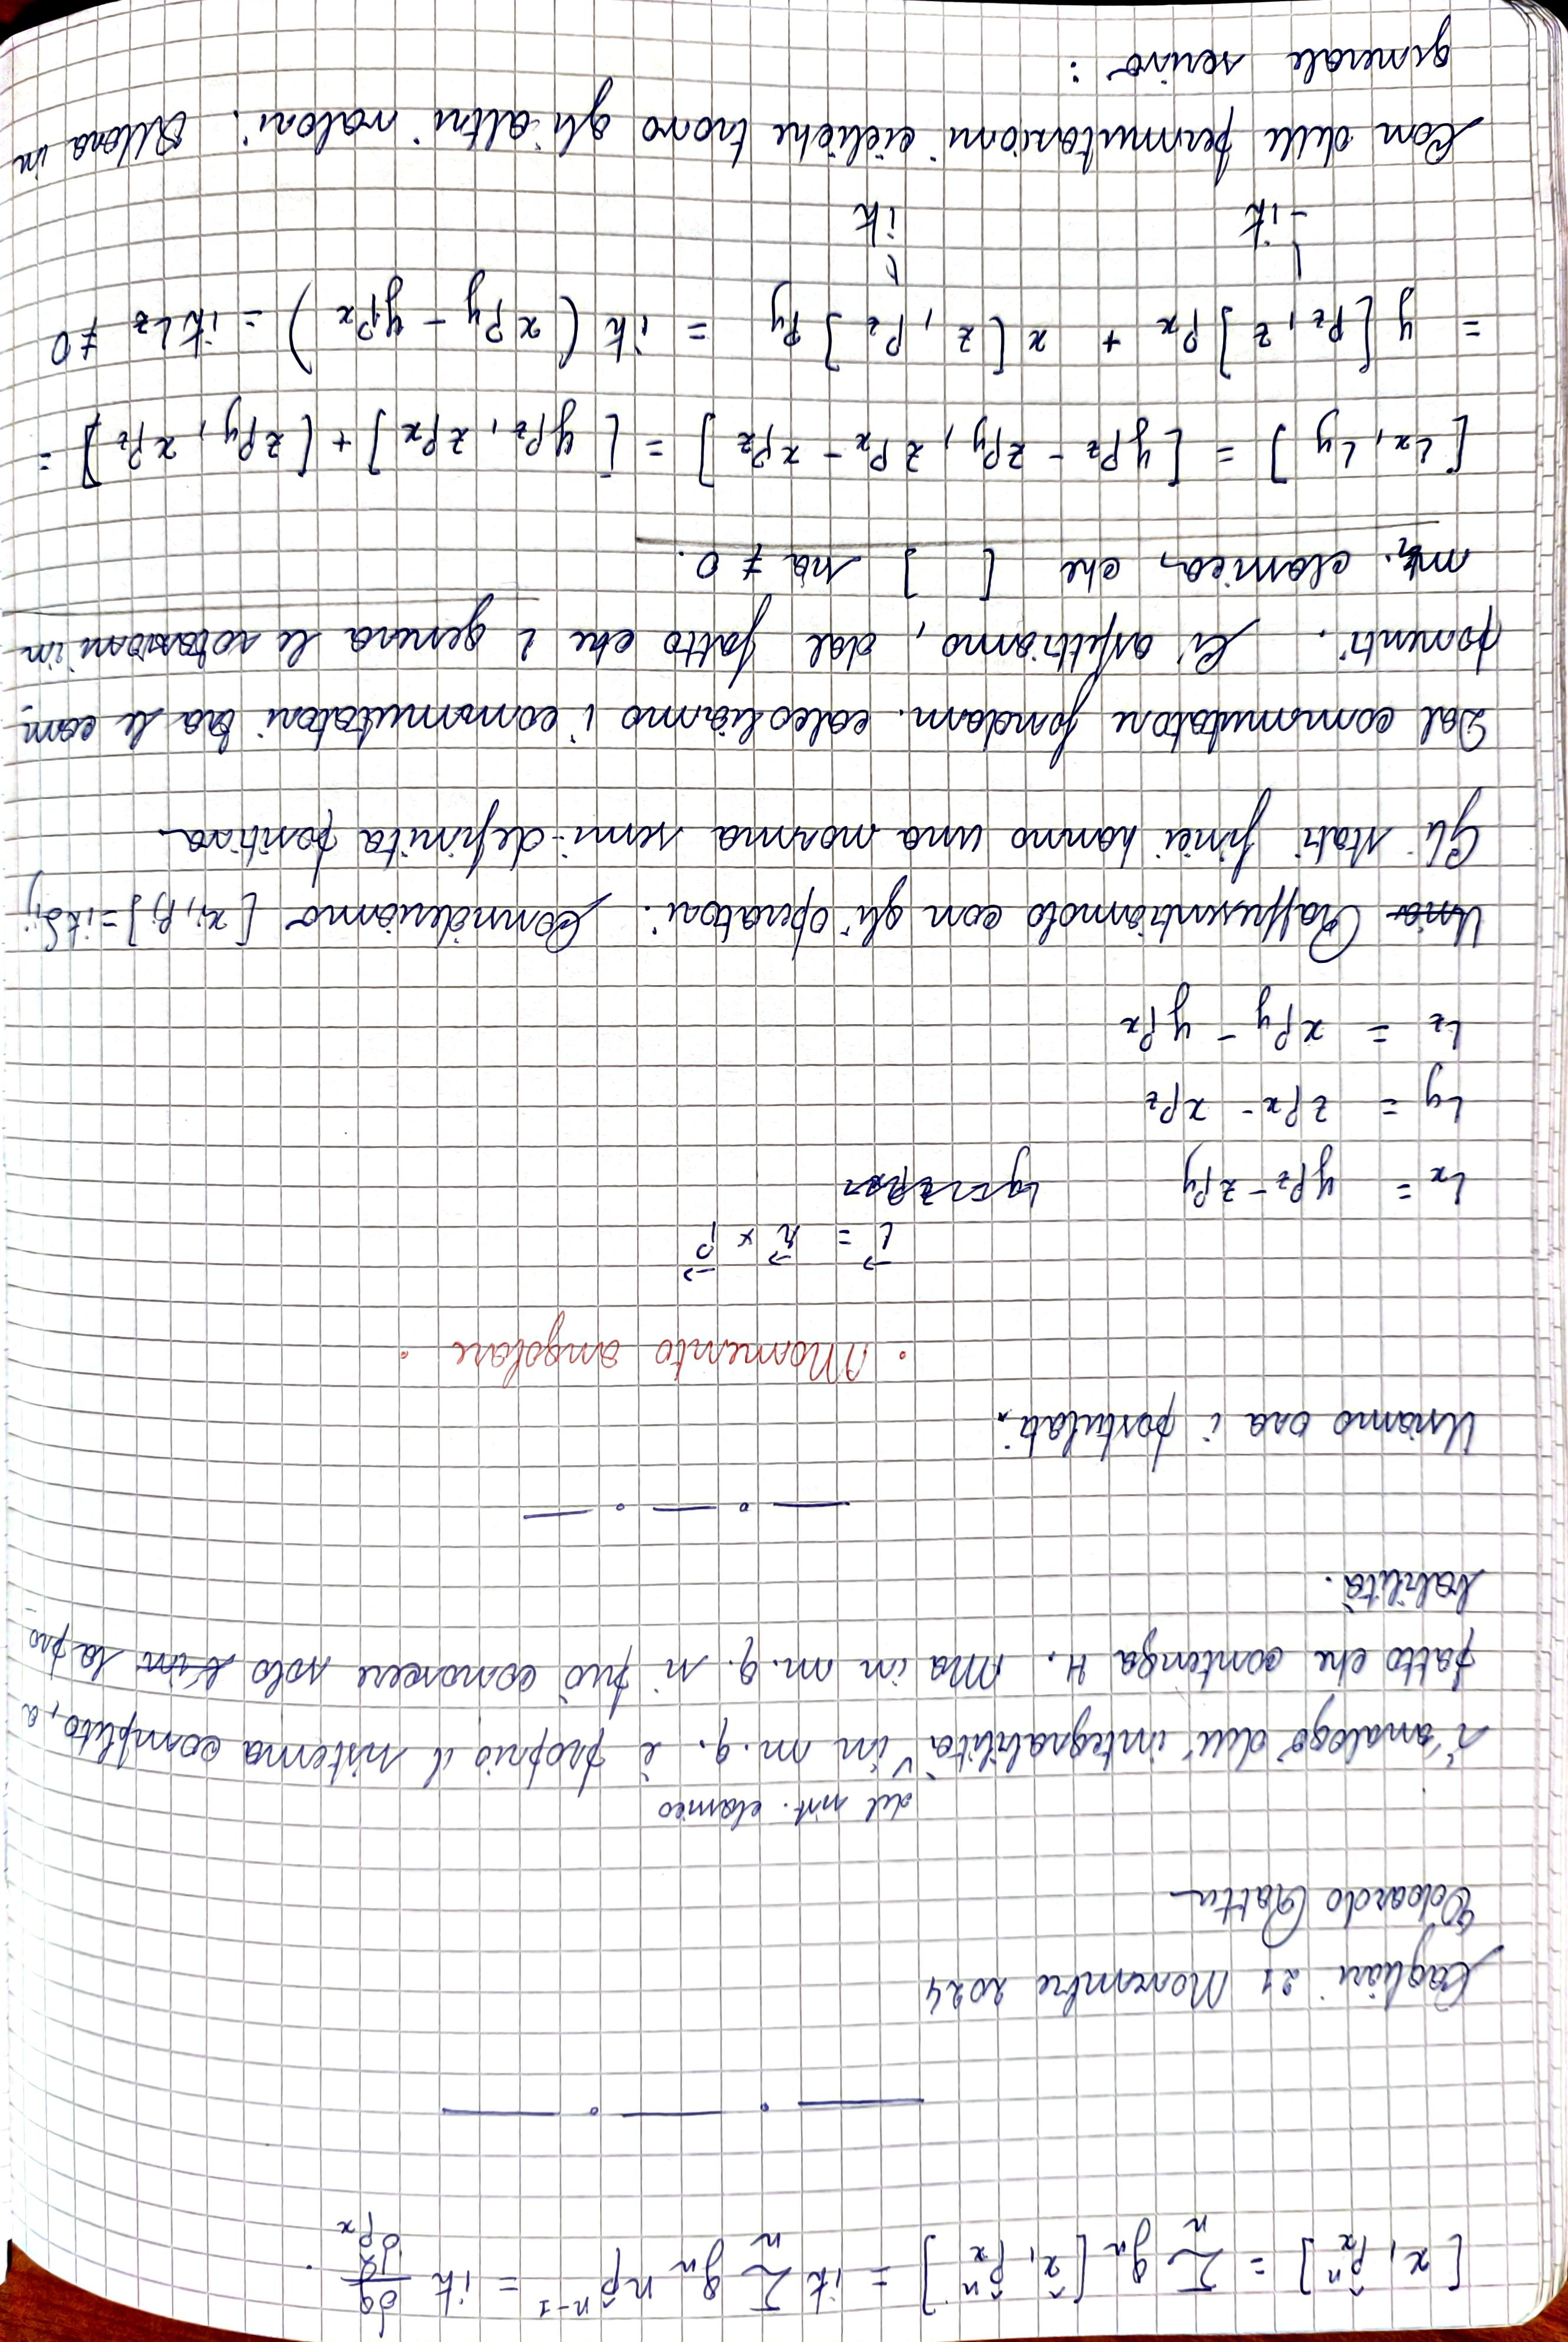 [x, p̂ₓⁿ] = Σₙ gₙ [x̂, p̂ₓⁿ] = iħ Σₙ gₙ n p̂ⁿ⁻¹ = iħ ∂g/∂pₓ .
Cagliari 21 Novembre 2024
Edoardo
del sist. classico
L'analogo dell'integrabilità in m.q. è proprio il sistema completo, a
patto che contenga H. Ma in m.q. si può conoscere solo la pro-
babilità.
Usiamo ora i postulati.
• Momento angolare •
L⃗ = r⃗ × p⃗
Lx = ypz - zpy
Ly = zpx - xpz
Lz = xpy - ypx
Rappresentiamolo con gli operatori. Consideriamo [xi, pj] = iħδij
Gli stati fisici hanno una norma semi-definita positiva.
Dal commutatore fondam. calcoliamo i commutatori tra le com-
ponenti. Ci aspettiamo, dal fatto che L genera le rotazioni in
classica, che [ ] sia ≠ 0.
[Lx, Ly] = [ypz - zpy, zpx - xpz] = [ypz, zpx] + [zpy, xpz] =
= y[pz, z]px + x[z, pz]py = iħ(xpy - ypx) = iħLz ≠ 0
-iħ iħ
Con delle permutazioni cicliche trovo gli altri valori. Allora in
generale scrivo :